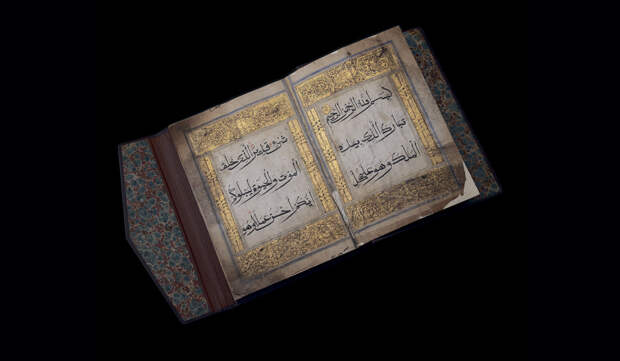 بسم الله الرحمن الرحيم
تبارك الذي بيده
الملك وهو على كل
شيء قدير الذي خلق
الموت والحيوة ليبلوكم
ايكم احسن عملا وهو